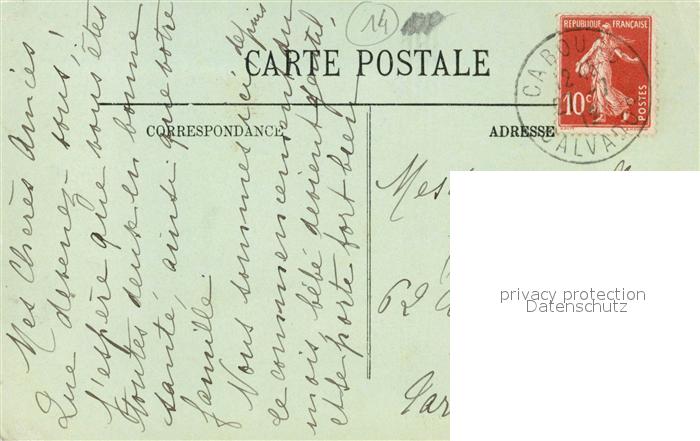 14
CARTE POSTALE
REPUBLIQUE FRANÇAISE
10c
POSTES
CABOU
CALVADOS
CORRESPONDANCE
ADRESSE
Mes Chères Amies
Que devenez-vous!
J'espère que vous êtes
toutes deux en bonne
santé, ainsi que votre
famille
Nous sommes ici depuis
le commencement du
mois, bébé devient gentil,
et se porte fort bien
62
privacy protection
Datenschutz